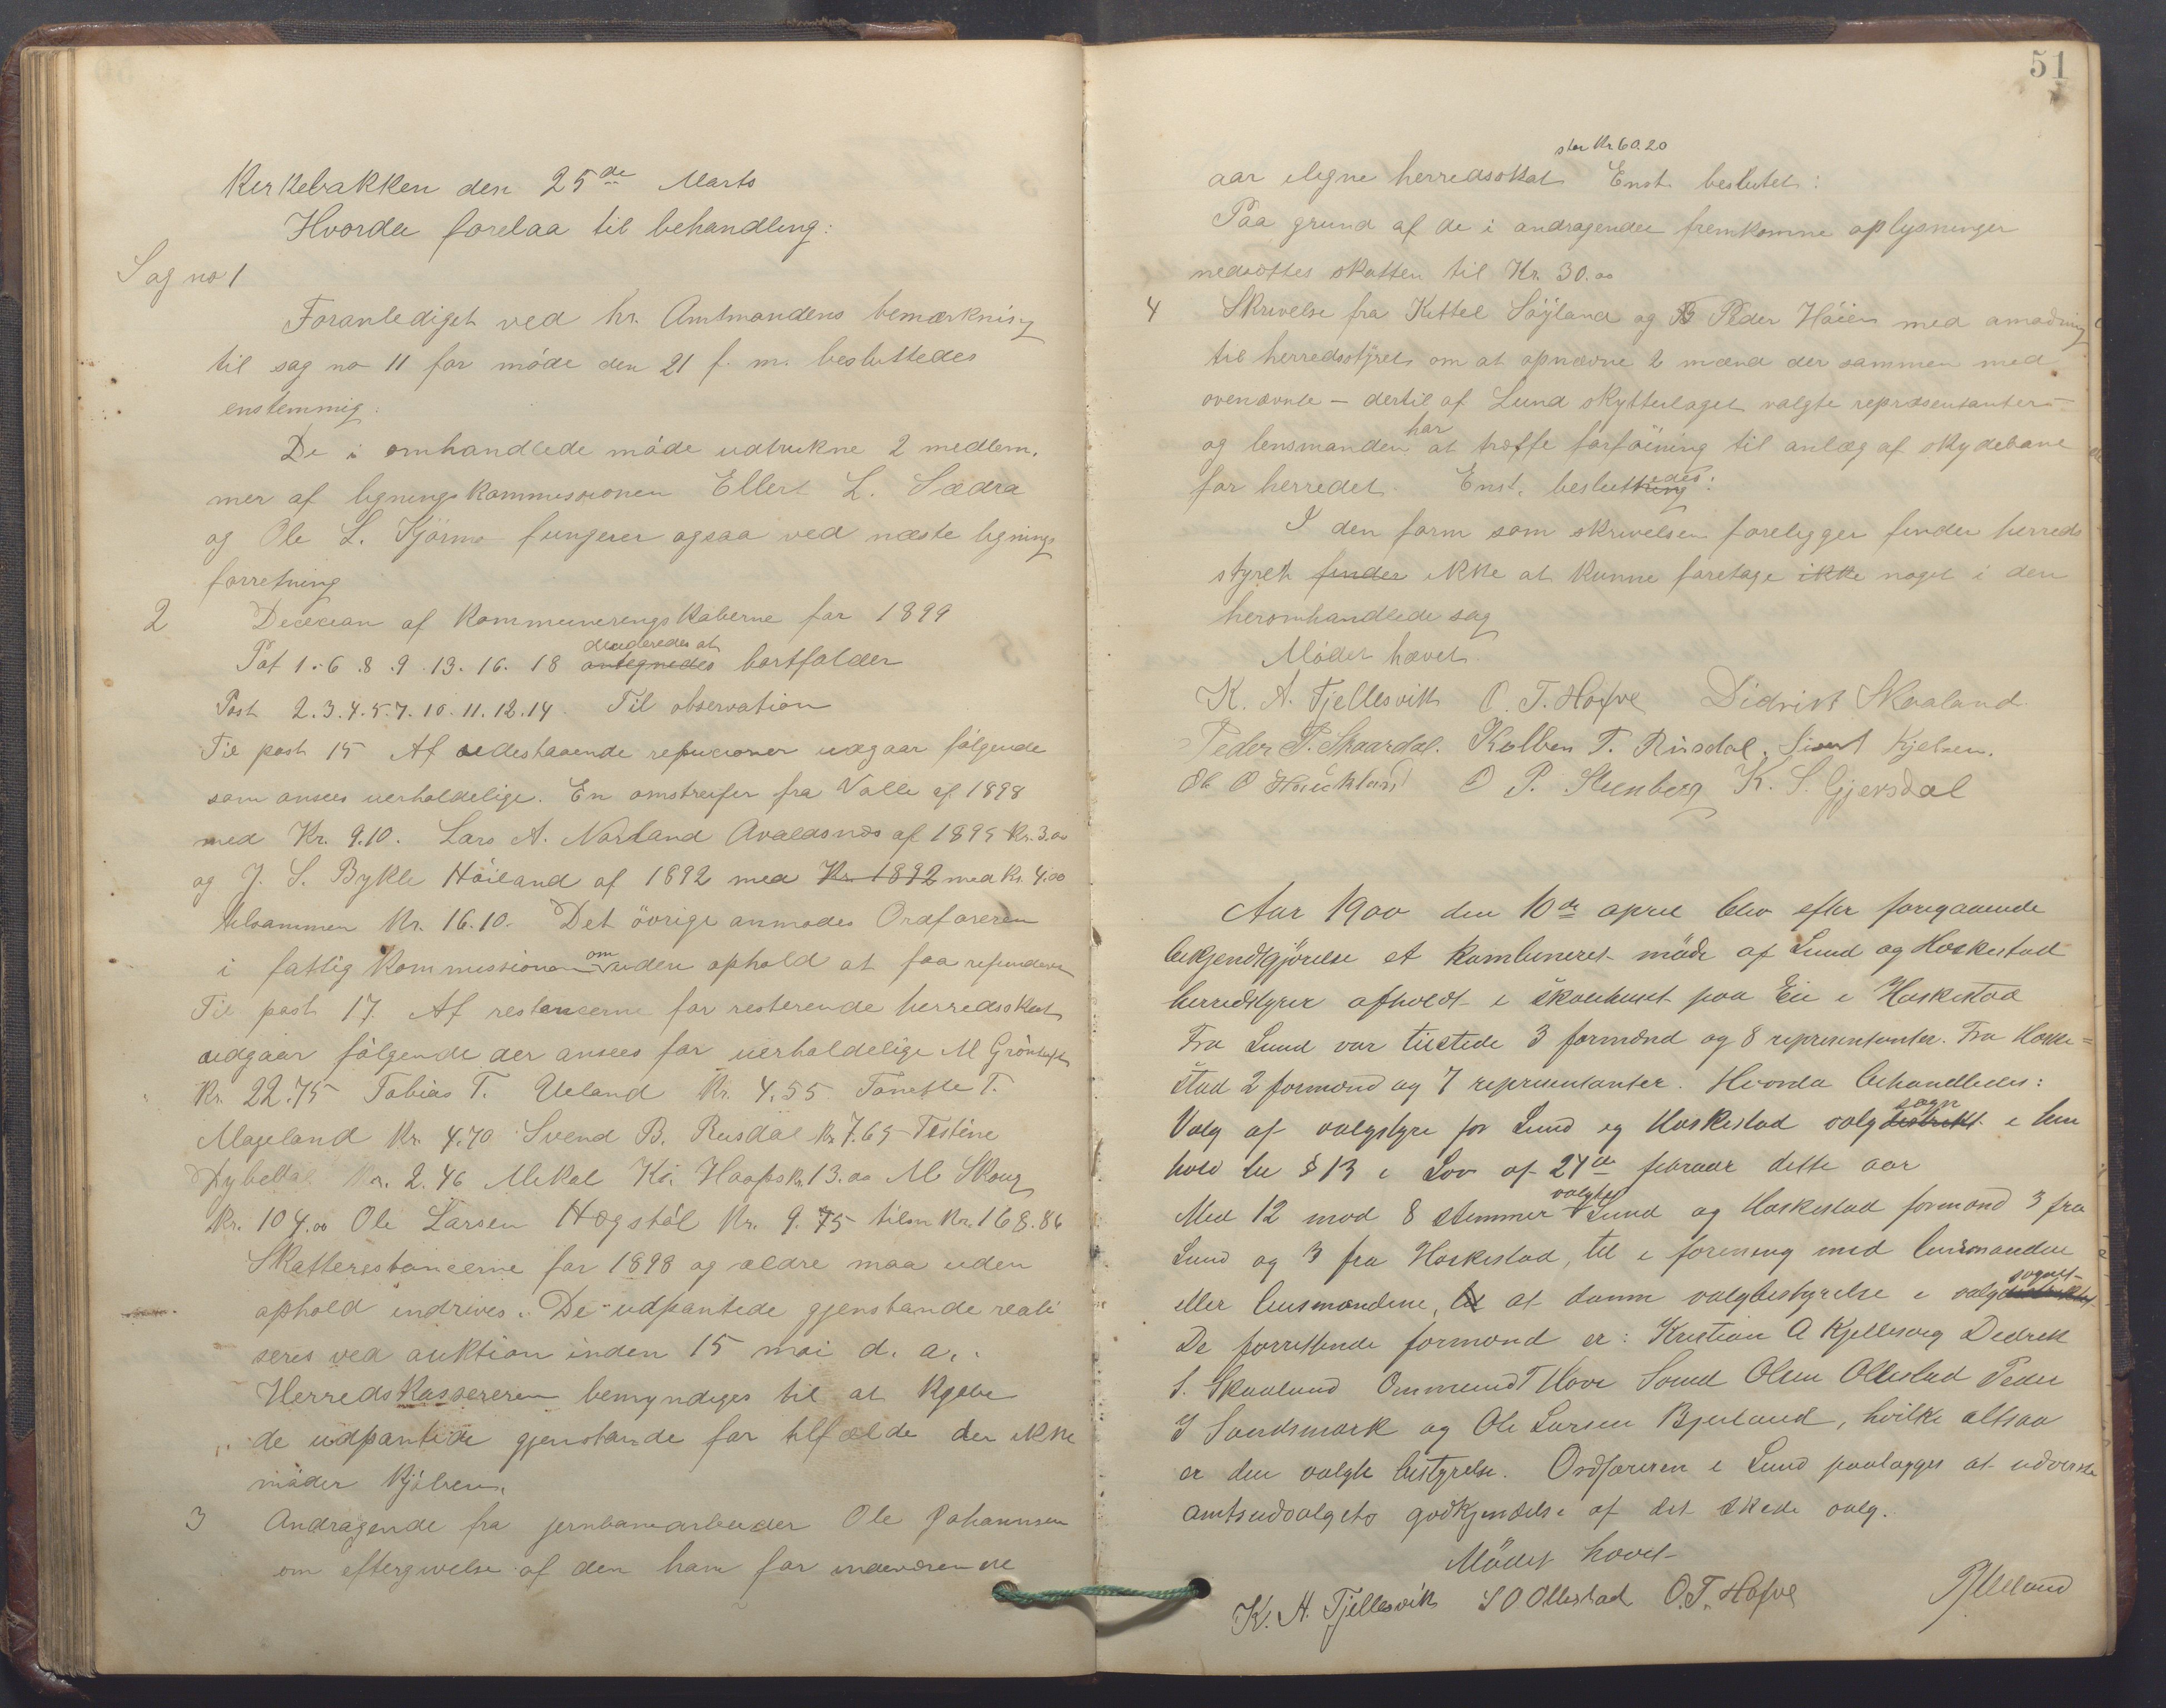 Kirkebakken den 25de Marts
Hvorda forelaa til behandling:
Sag no 1
Foranlediget ved hr. Amtmandens bemærkning
til sag no 11 for møde den 21 f. m. besluttedes
enstemmig:
De i omhandlede møde udtrukne 2 medlem-
mer af ligningskommissionen Ellert L. Sædra
og Ole L. Kjørmo fungerer ogsaa ved næste lignings
forretning
2 Decision af Kommuneregnskaberne for 1899
Pot 1.6.8.9.13.16.18 antegnedes decideredes at bortfalder
Post 2.3.4.5.7.10.11.12.14. Til observation
Til post 15 Af udestaaende refusioner udgaar følgende
som ansees uerholdelige. En omstreifer fra Valle af 1898
med Kr. 9.10. Lars A. Nørland Avaldsnæs af 1895 Kr. 3.00
og J. S. Bykle Høiland af 1892 med Kr. 1892 med Kr. 4.00
tilsammen Kr. 16.10. Det øvrige anmodes Ordføreren
i fattigkommissionen om uden ophold at faa refunderet
Til post 17. Af restancerne for resterende herredsskat
udgaar følgende der ansees for uerholdelige M Grøntoft
Kr. 22.75 Tobias T. Ueland Kr. 4.55 Tonette T.
Mageland Kr. 4.70 Svend B. Rusdal Kr 7.65 Tistine
Dybedal Kr. 2.46 Mikal Kr. Haaps Kr. 13.00 M Skoug
Kr. 104.00 Ole Larsen Hogstøl Kr. 9.75 tilsm Kr. 168.86
Skatterestancerne for 1898 og ældre maa uden
ophold indrives. De udpantede gjenstande reali
seres ved auktion inden 15 mai d. a.
Herredskassereren bemyndiges til at kjøbe
de udpantede gjenstande for tilfælde der ikke
møder kjøbere.
3 Andragende fra jernbanearbeider Ole Johannsen
om eftergivelse af den ham for indeværende
51
aar ilegne herredsskat stor Kr. 60.20 Enst. besluttet:
Paa grund af de i andragendet fremkomne oplysninger
nedsættes skatten til Kr. 30.00
4 Skrivelse fra Kittel Søyland og Peder Høien med anmodning
til herredsstyret om at opnævne 2 mænd der sammen med
ovenævnte – dertil af Lund skytterlaget valgte repræsentanter –
og lensmanden har at træffe forføining til anlæg af skydebane
for herredet. Enst. besluttedes:
I den form som skrivelsen foreligger finder herreds
styret finder ikke at kunne foretage ikke noget i den
heromhandlede sag
Mødet hævet.
K. A. Fjellesvik O. T. Hofve Didrik Skaaland
Peder P. Skaardal. Kolben T. Rusdal. Sivert Kjelsen.
Ole O Haukland O P. Steenberg K. S. Gjersdal
Aar 1900 den 10de april blev efter foregaaende
bekjendtgjørelse et kombineret møde af Lund og Heskestad
herredstyrer afholdt i skolehuset paa Eie i Heskestad
Fra Lund var tilstede 3 formænd og 8 representanter. Fra Heske=
stad 2 formænd og 7 representanter. Hvorda behandledes:
Valg af valgstyre for Lund og Heskestad valgdistrikt sogn i hen
hold til § 13 i Lov af 24de februar dette aar
Med 12 mod 8 stemmer valgtes Lund og Heskestad formænd 3 fra
Lund og 3 fra Heskestad, til i forening med lensmanden
eller lensmændene, til at danne valgbestyrelse i valgdistriktet sognet-
De forrettende formænd er: Kristian A Kjellesvig Dedrik
S. Skaaland Ommund T Hove Svend Olsen Ollestad Peder
J Sandsmark og Ole Larsen Bjerland, hvilke altsaa
er den valgte bestyrelse. Ordføreren i Lund paalægges at udvirke
amtsudvalgets godkjendelse af det skede valg.
Mødet hævet
K. A. Fjellesvik S O Ollestad O. T. Hofve